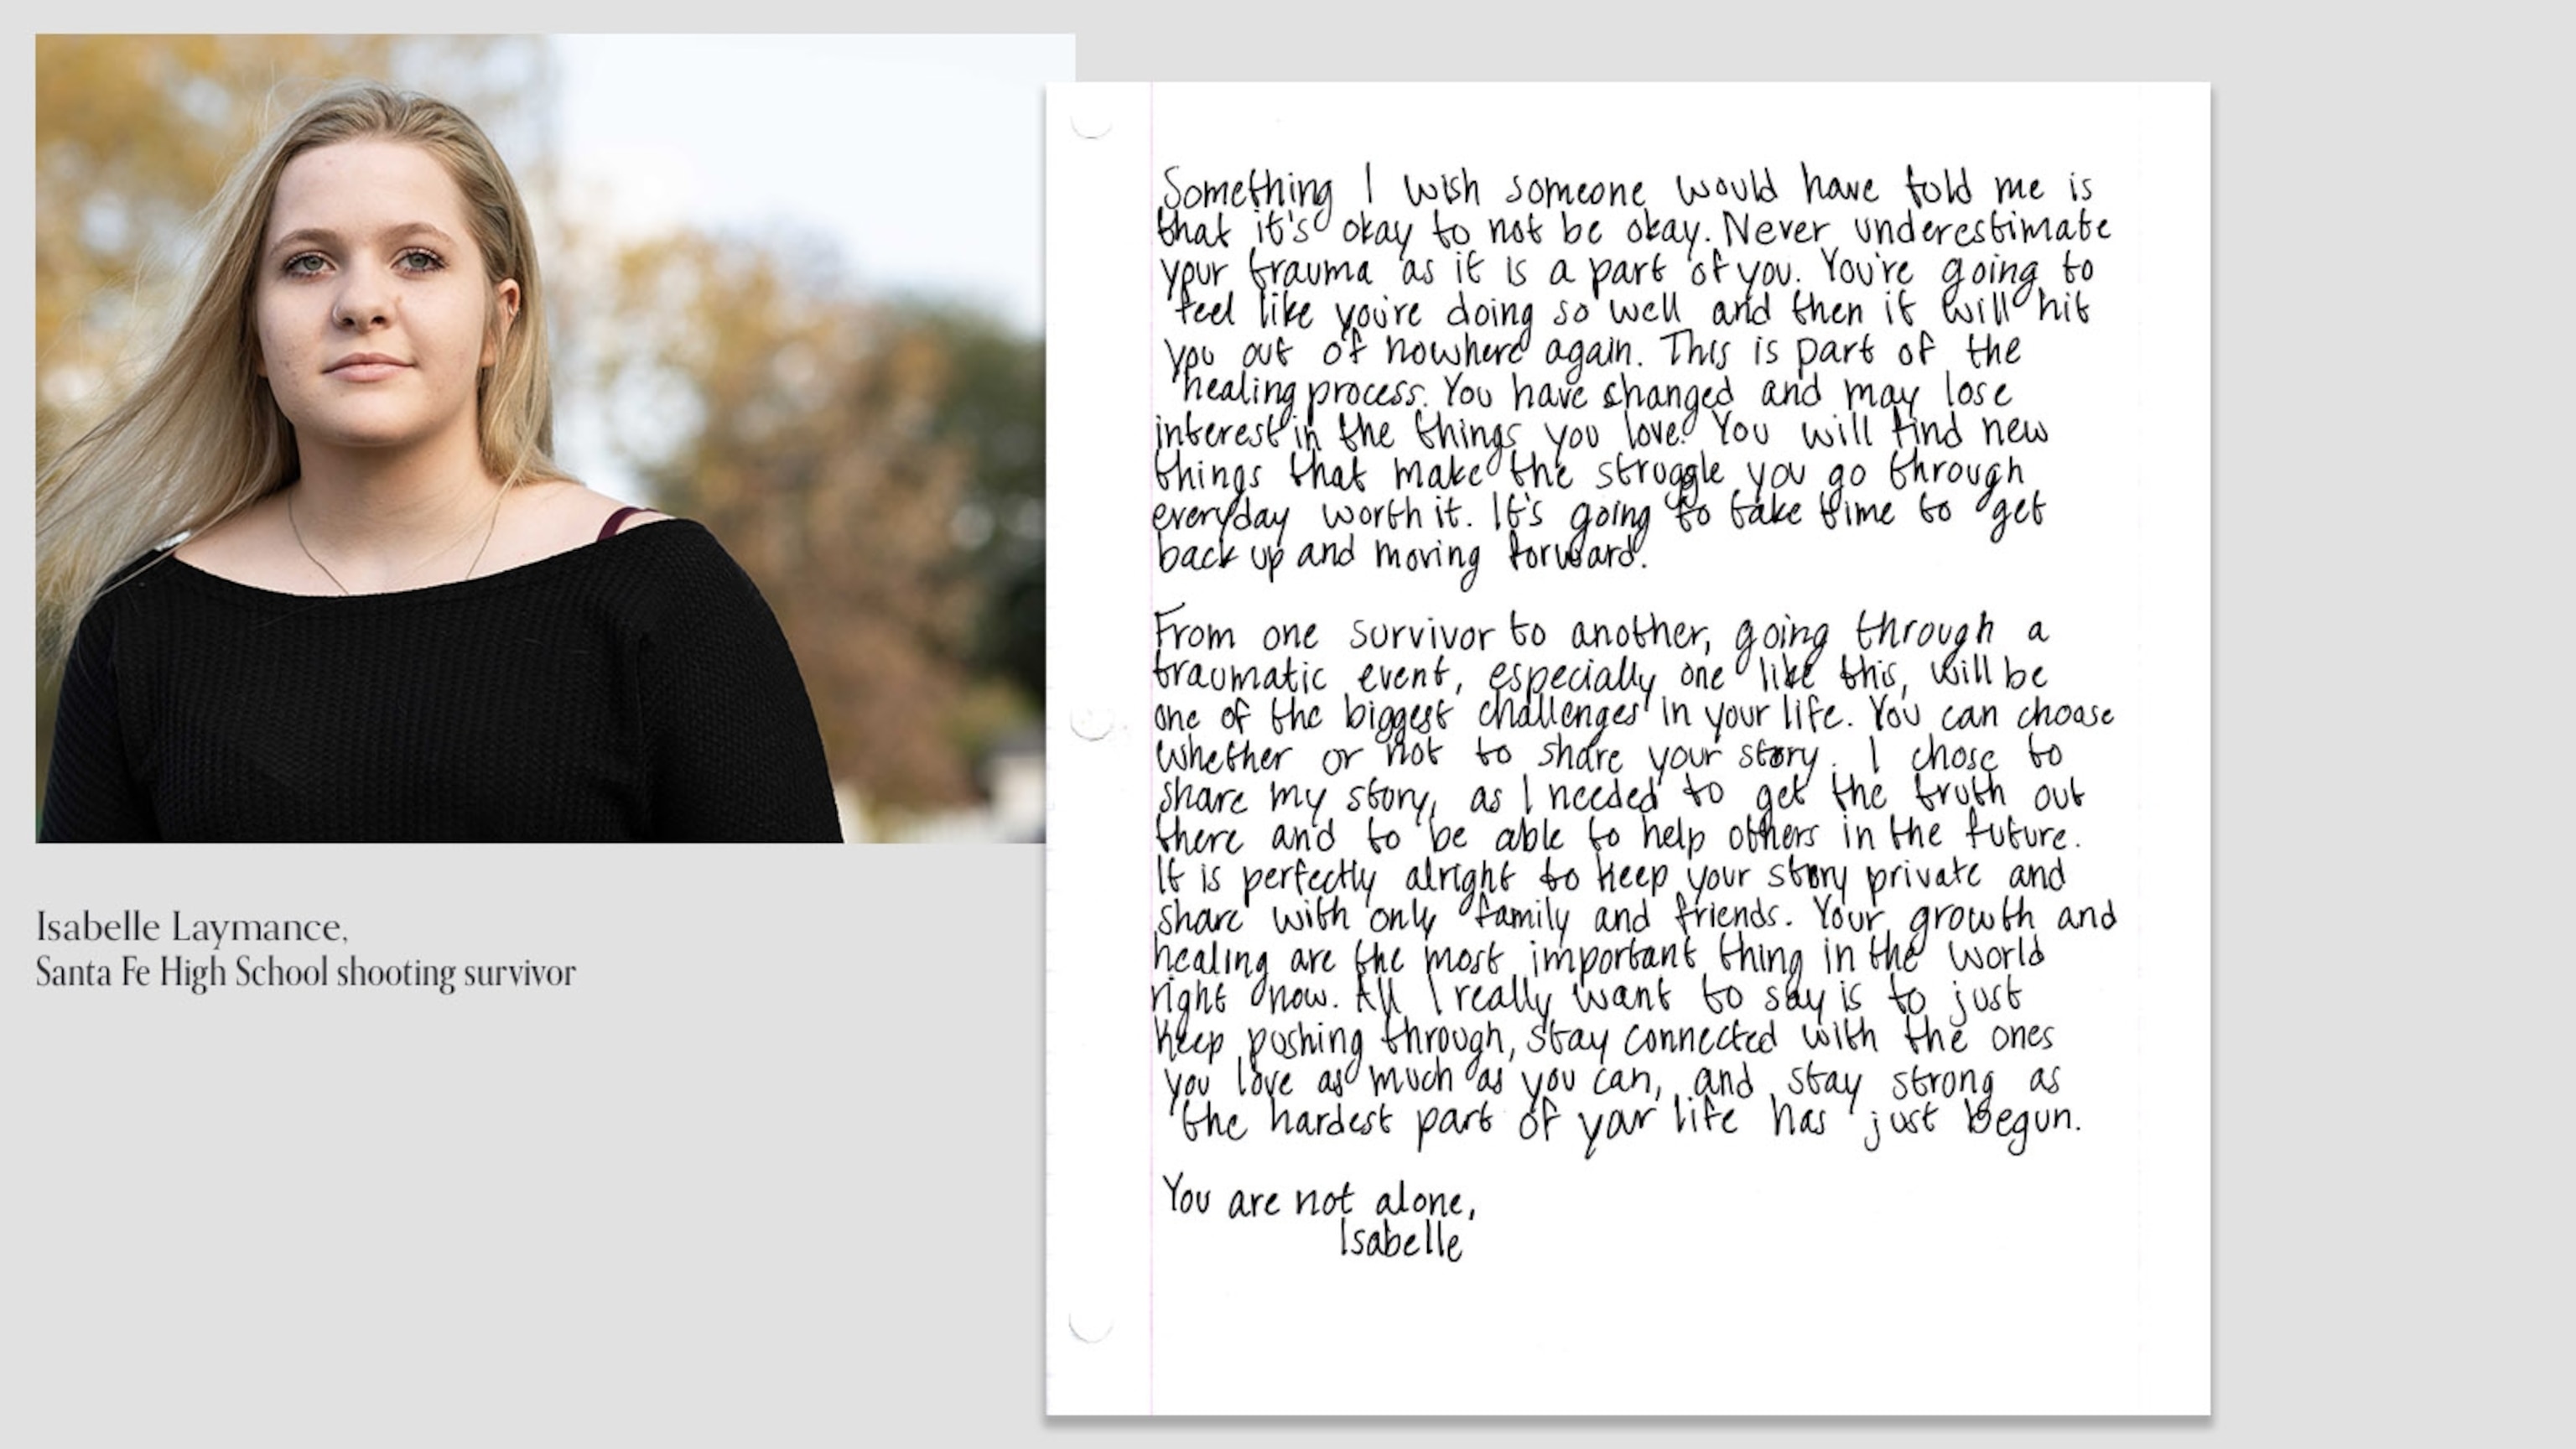 Isabelle Laymance,
Santa Fe High School shooting survivor
Something I wish someone would have told me is
that it's okay to not be okay. Never underestimate
your trauma as it is a part of you. You're going to
feel like you're doing so well and then it will hit
you out of nowhere again. This is part of the
healing process. You have changed and may lose
interest in the things you love. You will find new
things that make the struggle you go through
everyday worth it. It's going to take time to get
back up and moving forward.
From one survivor to another, going through a
traumatic event, especially one like this, will be
one of the biggest challenges in your life. You can choose
whether or not to share your story. I chose to
share my story, as I needed to get the truth out
there and to be able to help others in the future.
It is perfectly alright to keep your story private and
share with only family and friends. Your growth and
healing are the most important thing in the world
right now. All I really want to say is to just
keep pushing through, stay connected with the ones
you love as much as you can, and stay strong as
the hardest part of your life has just begun.
You are not alone,
Isabelle